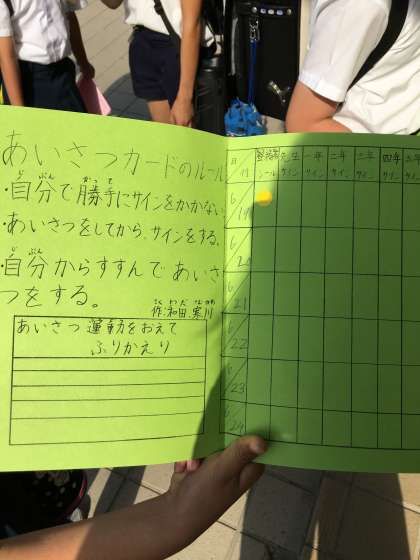 あいさつカードのルール
・自分で勝手にサインをかかない
・あいさつをしてから、サインをする。
・自分からすすんであいさ
つをする。
作:和田、寒川
あいさつ運動をおえて
ふりかえり
月 日 登校 シール 先生 サイン 一年 サイン 二年 サイン 三年 サイン 四年 サイン 五年 サイン
6/19
6/20
6/21
6/22
6/23
6/24